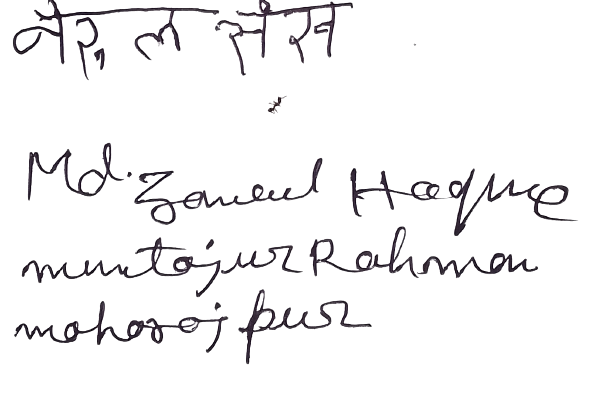 नेरुल सेख
Md. Zameul Haque
muntajur Rahman
maharajpur